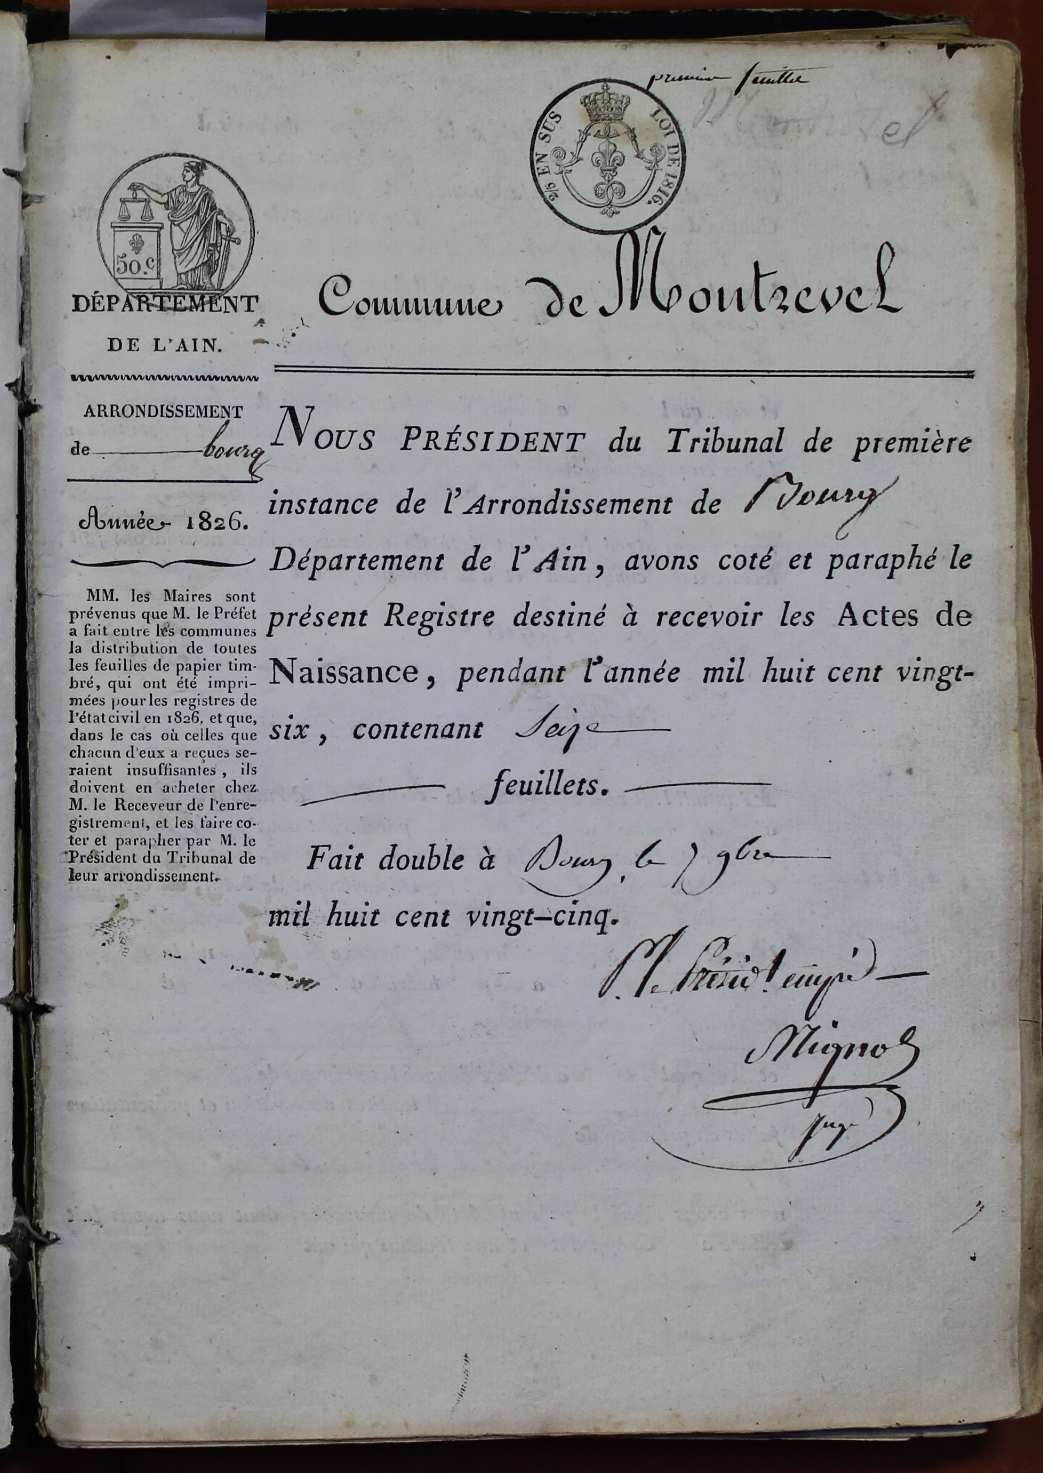 premier feuillet
2/5 EN SUS LOI DE 1816.
50.c
DÉPARTEMENT
DE L'AIN.
ARRONDISSEMENT
de bourg
Année 1826.
MM. les Maires sont
prévenus que M. le Préfet
a fait entre les communes
la distribution de toutes
les feuilles de papier tim-
bré, qui ont été impri-
mées pour les registres de
l'état civil en 1826, et que,
dans le cas où celles que
chacun d'eux a reçues se-
raient insuffisantes, ils
doivent en acheter chez
M. le Receveur de l'enre-
gistrement, et les faire co-
ter et parapher par M. le
Président du Tribunal de
leur arrondissement.
Commune de Montrevel
NOUS PRÉSIDENT du Tribunal de première
instance de l'Arrondissement de Bourg
Département de l'Ain, avons coté et paraphé le
présent Registre destiné à recevoir les Actes de
Naissance, pendant l'année mil huit cent vingt-
six, contenant Seize
feuillets.
Fait double à Bourg, le 7 9bre
mil huit cent vingt-cinq.
P. le Présidt. empé
Mignot
juge